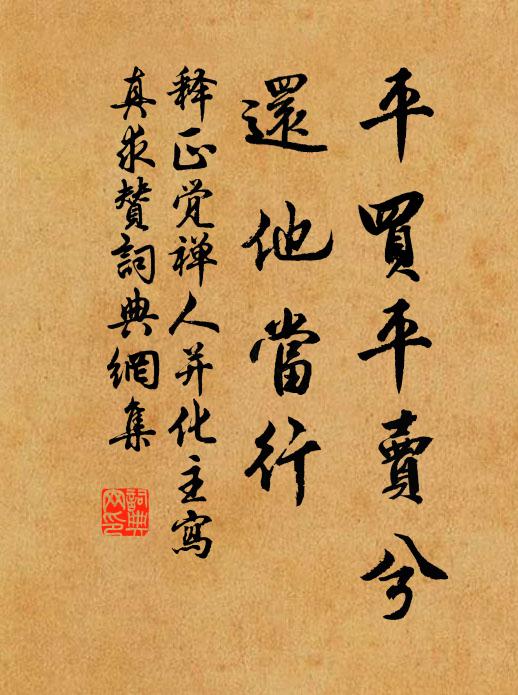 平買平賣兮
還他當行
釋正觉禅人并化主寫
真求賛詞典網集
詞典网印